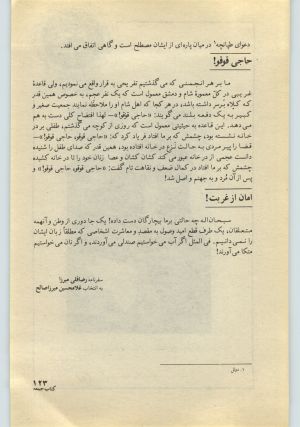 دعوای طپانچه۱ در میان پاره‌ای از ایشان مصطلح است و گاهی اتفاق می افتد.
حاجی قوقو!
ما بر هر انجمنی که می گذشتیم تفریحی به قرار واقع می نمودیم، ولی قاعدهٔ
غریبی در کل معمورهٔ شام و دمشق معمول است که یک نفر عجم، به خصوص همین قدر
که کلاه بر سر داشته باشد، در هر کجا که اهل شام او را ملاحظه نمایند جمعیت صغیر و
کبیر به یک دفعه بنند می گویند: «حاجی قوقو!»— لهذا افتضاح کلی دست به هم
می دهد. این قاعده به حیثیتی معمول است که روزی از کوچه می گذشتم، طفلی بر در
خانه نشسته بود، چشمش که بر ما افتاد فریاد کرد که: «حاجی قوقو، حاجی قوقو!» — از
قضا پیر مردی به حالت نزع در خانه افتاده بود، همین قدر که صدای طفل را شنیده
دانست عجمی از در خانه عبور می کند کشان کشان و عصا زنان خود را تا در خانه کشیده
چشمش که بر ما افتاد در کمال ضعف و نقاهت تام گفت: «حاجی قوقو، حاجی قوقو!» و
پس از آن مُرد و به جهنم و اصل شد!
امان از غربت!
سبحان‌اله چه حالتی بر ما بیچارگان دست داده! یک جا دوری از وطن و آنهمه
متعلقان، یک طرف قطع امید وصول به مقصد و معاشرت اشخاصی که مطلقاً زبان ایشان
را نمی دانیم. فی المثل اگر آب می خواستیم صندلی می آوردند، و اگر نان می خواستیم
متکا می آورند!
سفرنامه رضاقلی میرزا
به انتخاب غلامحسین میرزاصالح
۱. دوئل
۱۲۳
کتاب جمعه